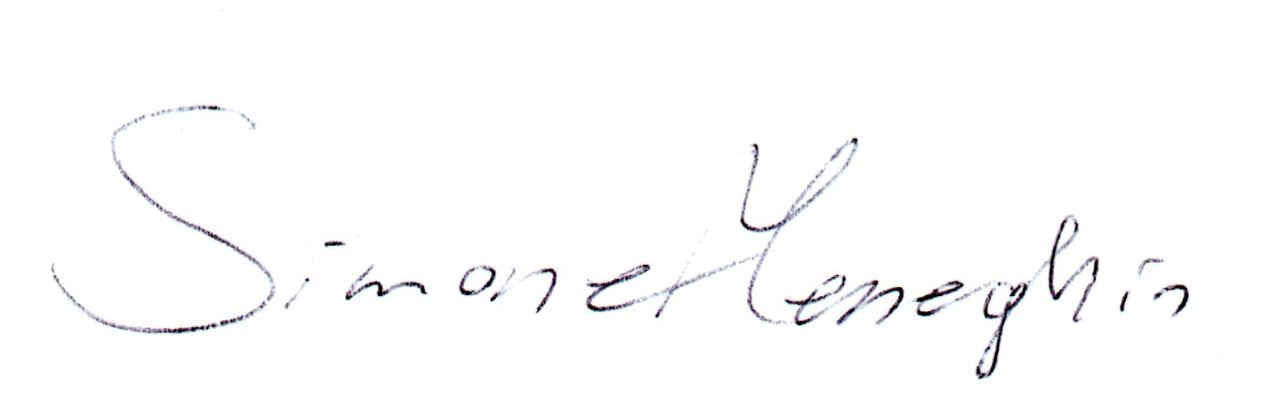 Simone Meneghin